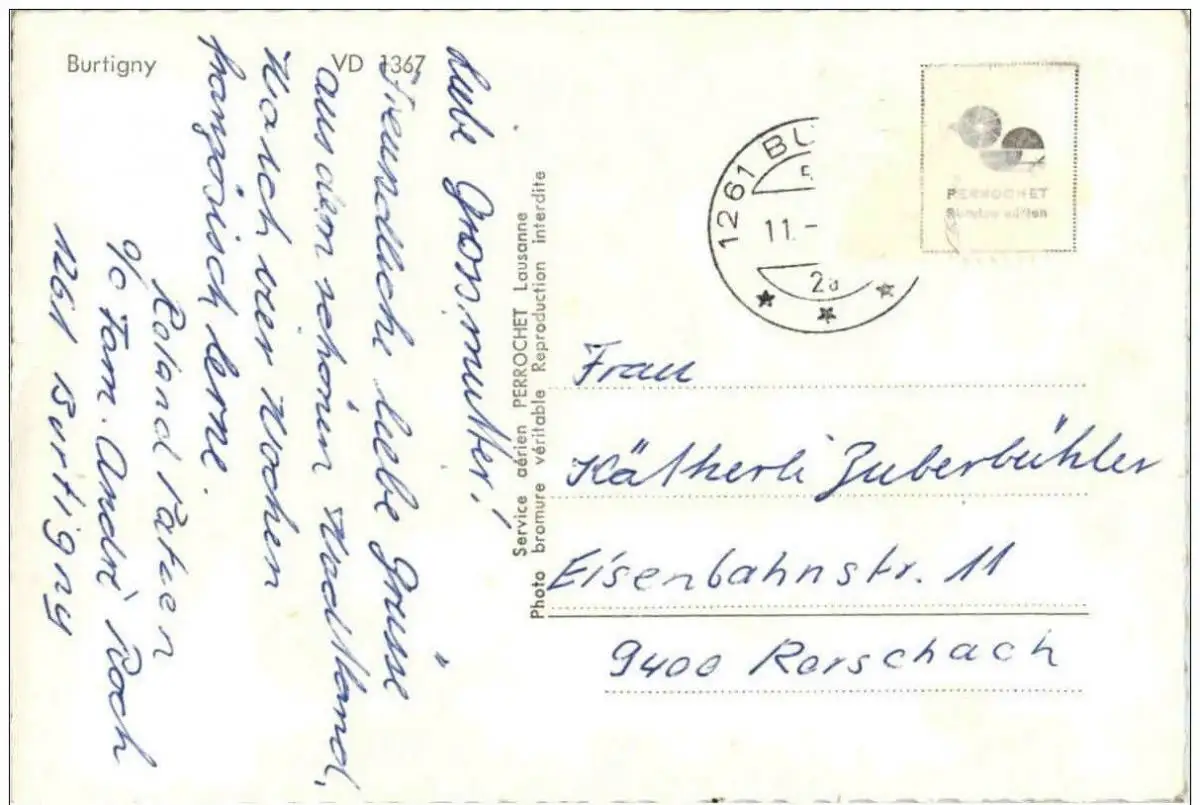 Burtigny VD 1367
Liebe Grossmutter!
Freundliche liebe Grüsse
aus dem schönen Waadtland,
Noch vier Wochen
französisch lerne.
Roland
c/o Fam. André Roch
1261 Burtigny
Service aérien PERROCHET Lausanne
Photo bromure véritable Reproduction interdite
1261 BU
11. -
PERROCHET
Frau
Kätherli Zuberbühler
Eisenbahnstr. 11
9400 Rorschach